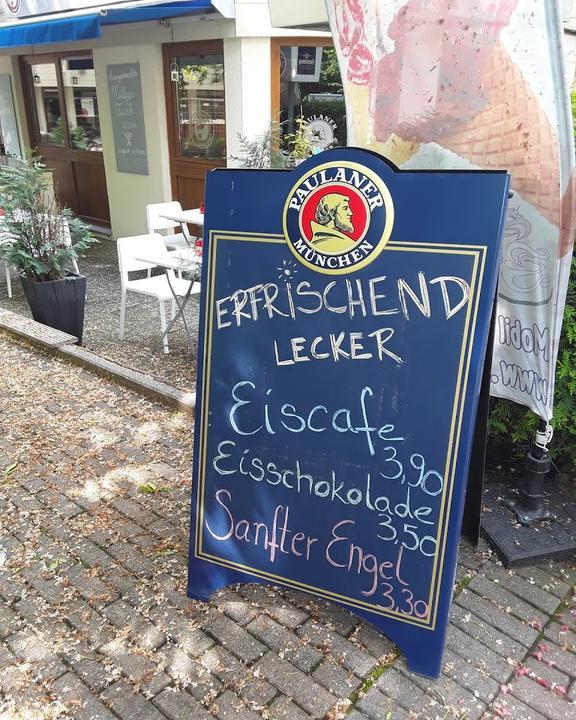 PAULANER
MÜNCHEN
ERFRISCHEND
LECKER
Eiscafe
3,90
Eisschokolade
3,50
Sanfter Engel
3,30
Mobil
www.
PAULANER
Mittags
Tisch